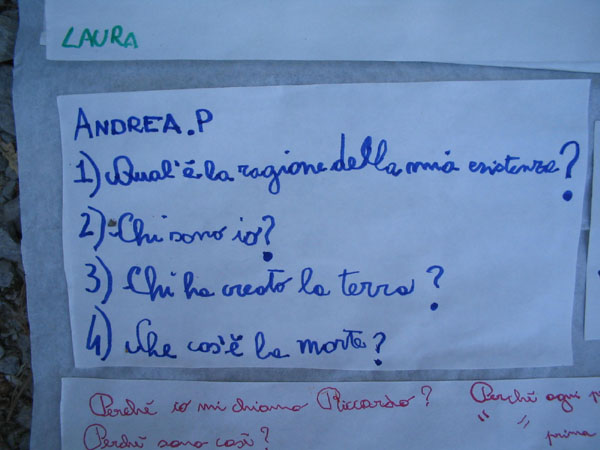 LAURA
ANDREA.P
1) Qual'è la ragione della mia esistenza?
2) Chi sono io?
3) Chi ha creato la terra?
4) Che cos'è la morte?
Perché io mi chiamo Riccardo? Perché ogni
" " prima
Perché sono così?